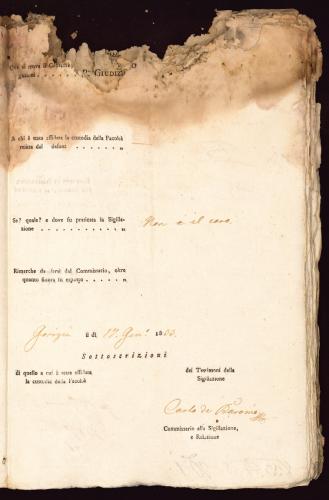 P. GIUDIZ
A chi è stata affidata la custodia della Facoltà
mitta del defunt . . . . . . . „
Se? quale? e dove fu praticata la Sigillazione . . . . . . . „ Non è il caso
Rimarche da farsi dal Commissario, oltre
quanto finora fu esposto . . . . . „
Gorizia li di 17. Gen.º 18
Sottoscrizioni
di quello a cui è stata affidata
la custodia della Facoltà
dei Testimoni della
Sigillazione
Carlo de
e
Commissario alla Sigillazione,
e Relazione